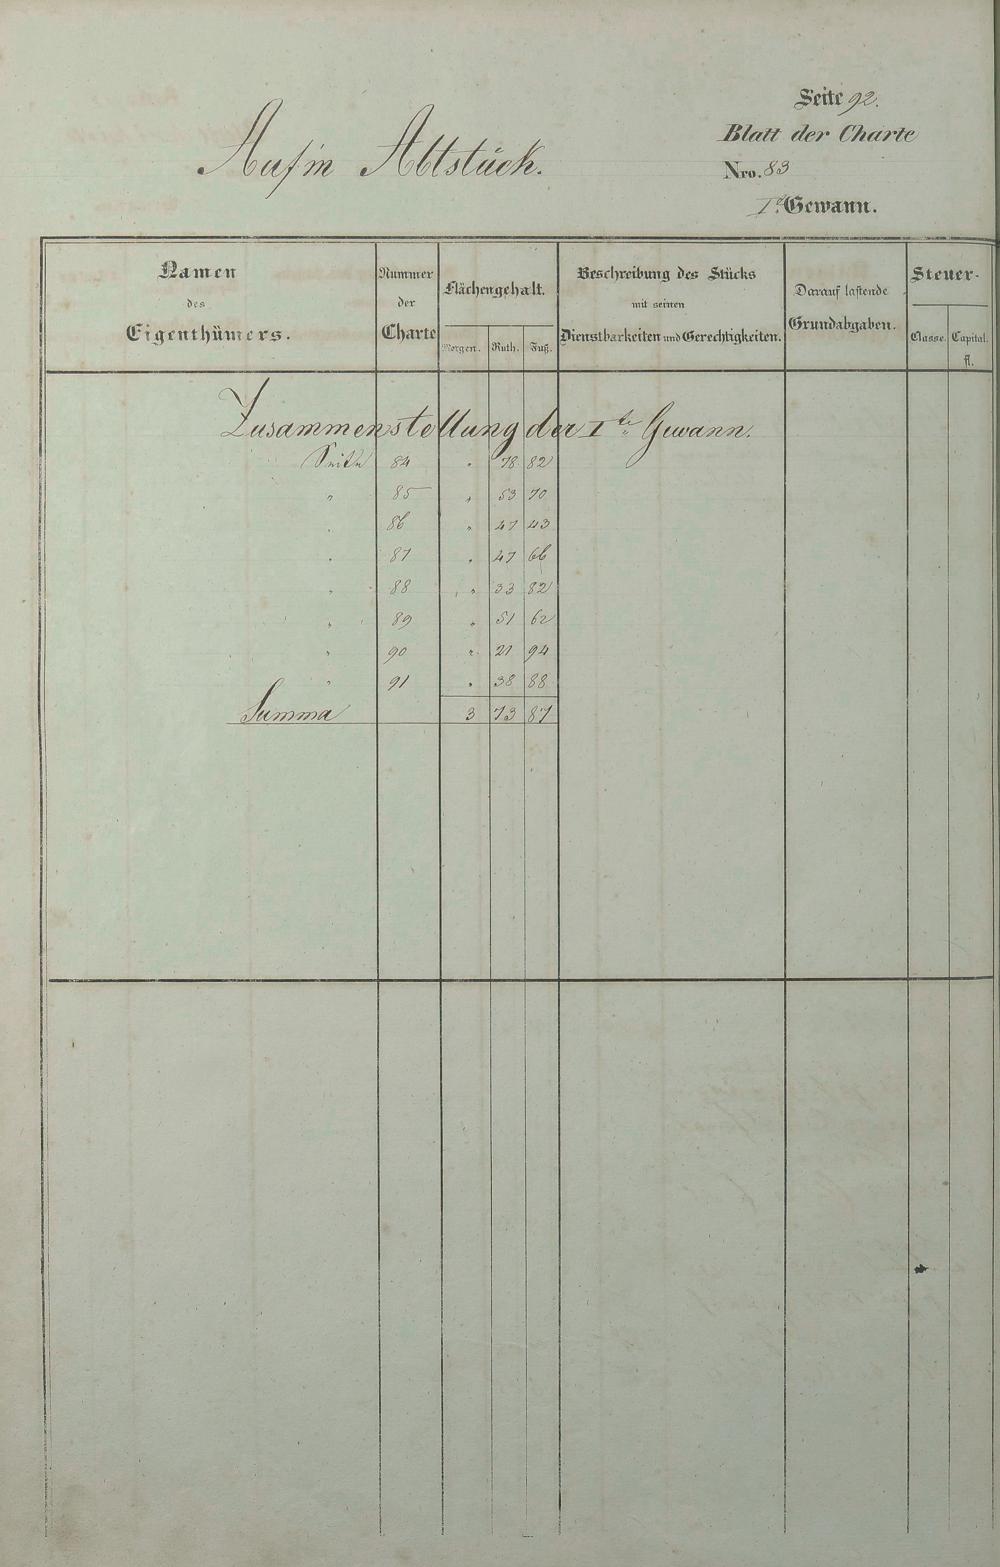 Seite 92.
Auf'm Abtstück.
Blatt der Charte
Nro. 83
Ie. Gewann.
Namen des Eigenthümers.
Nummer der Charte
Flächengehalt.
Morgen. Ruth. Fuß.
Beschreibung des Stücks mit seinen Dienstbarkeiten und Gerechtigkeiten.
Darauf lastende Grundabgaben.
Steuer-
Classe. Capital. fl.
Zusammenstellung der Ite Gewann.
Seite 84 " 78 82
" 85 " 53 70
" 86 " 47 43
" 87 " 47 66
" 88 " 33 82
" 89 " 51 62
" 90 " 21 94
" 91 " 38 88
Summa 3 73 87